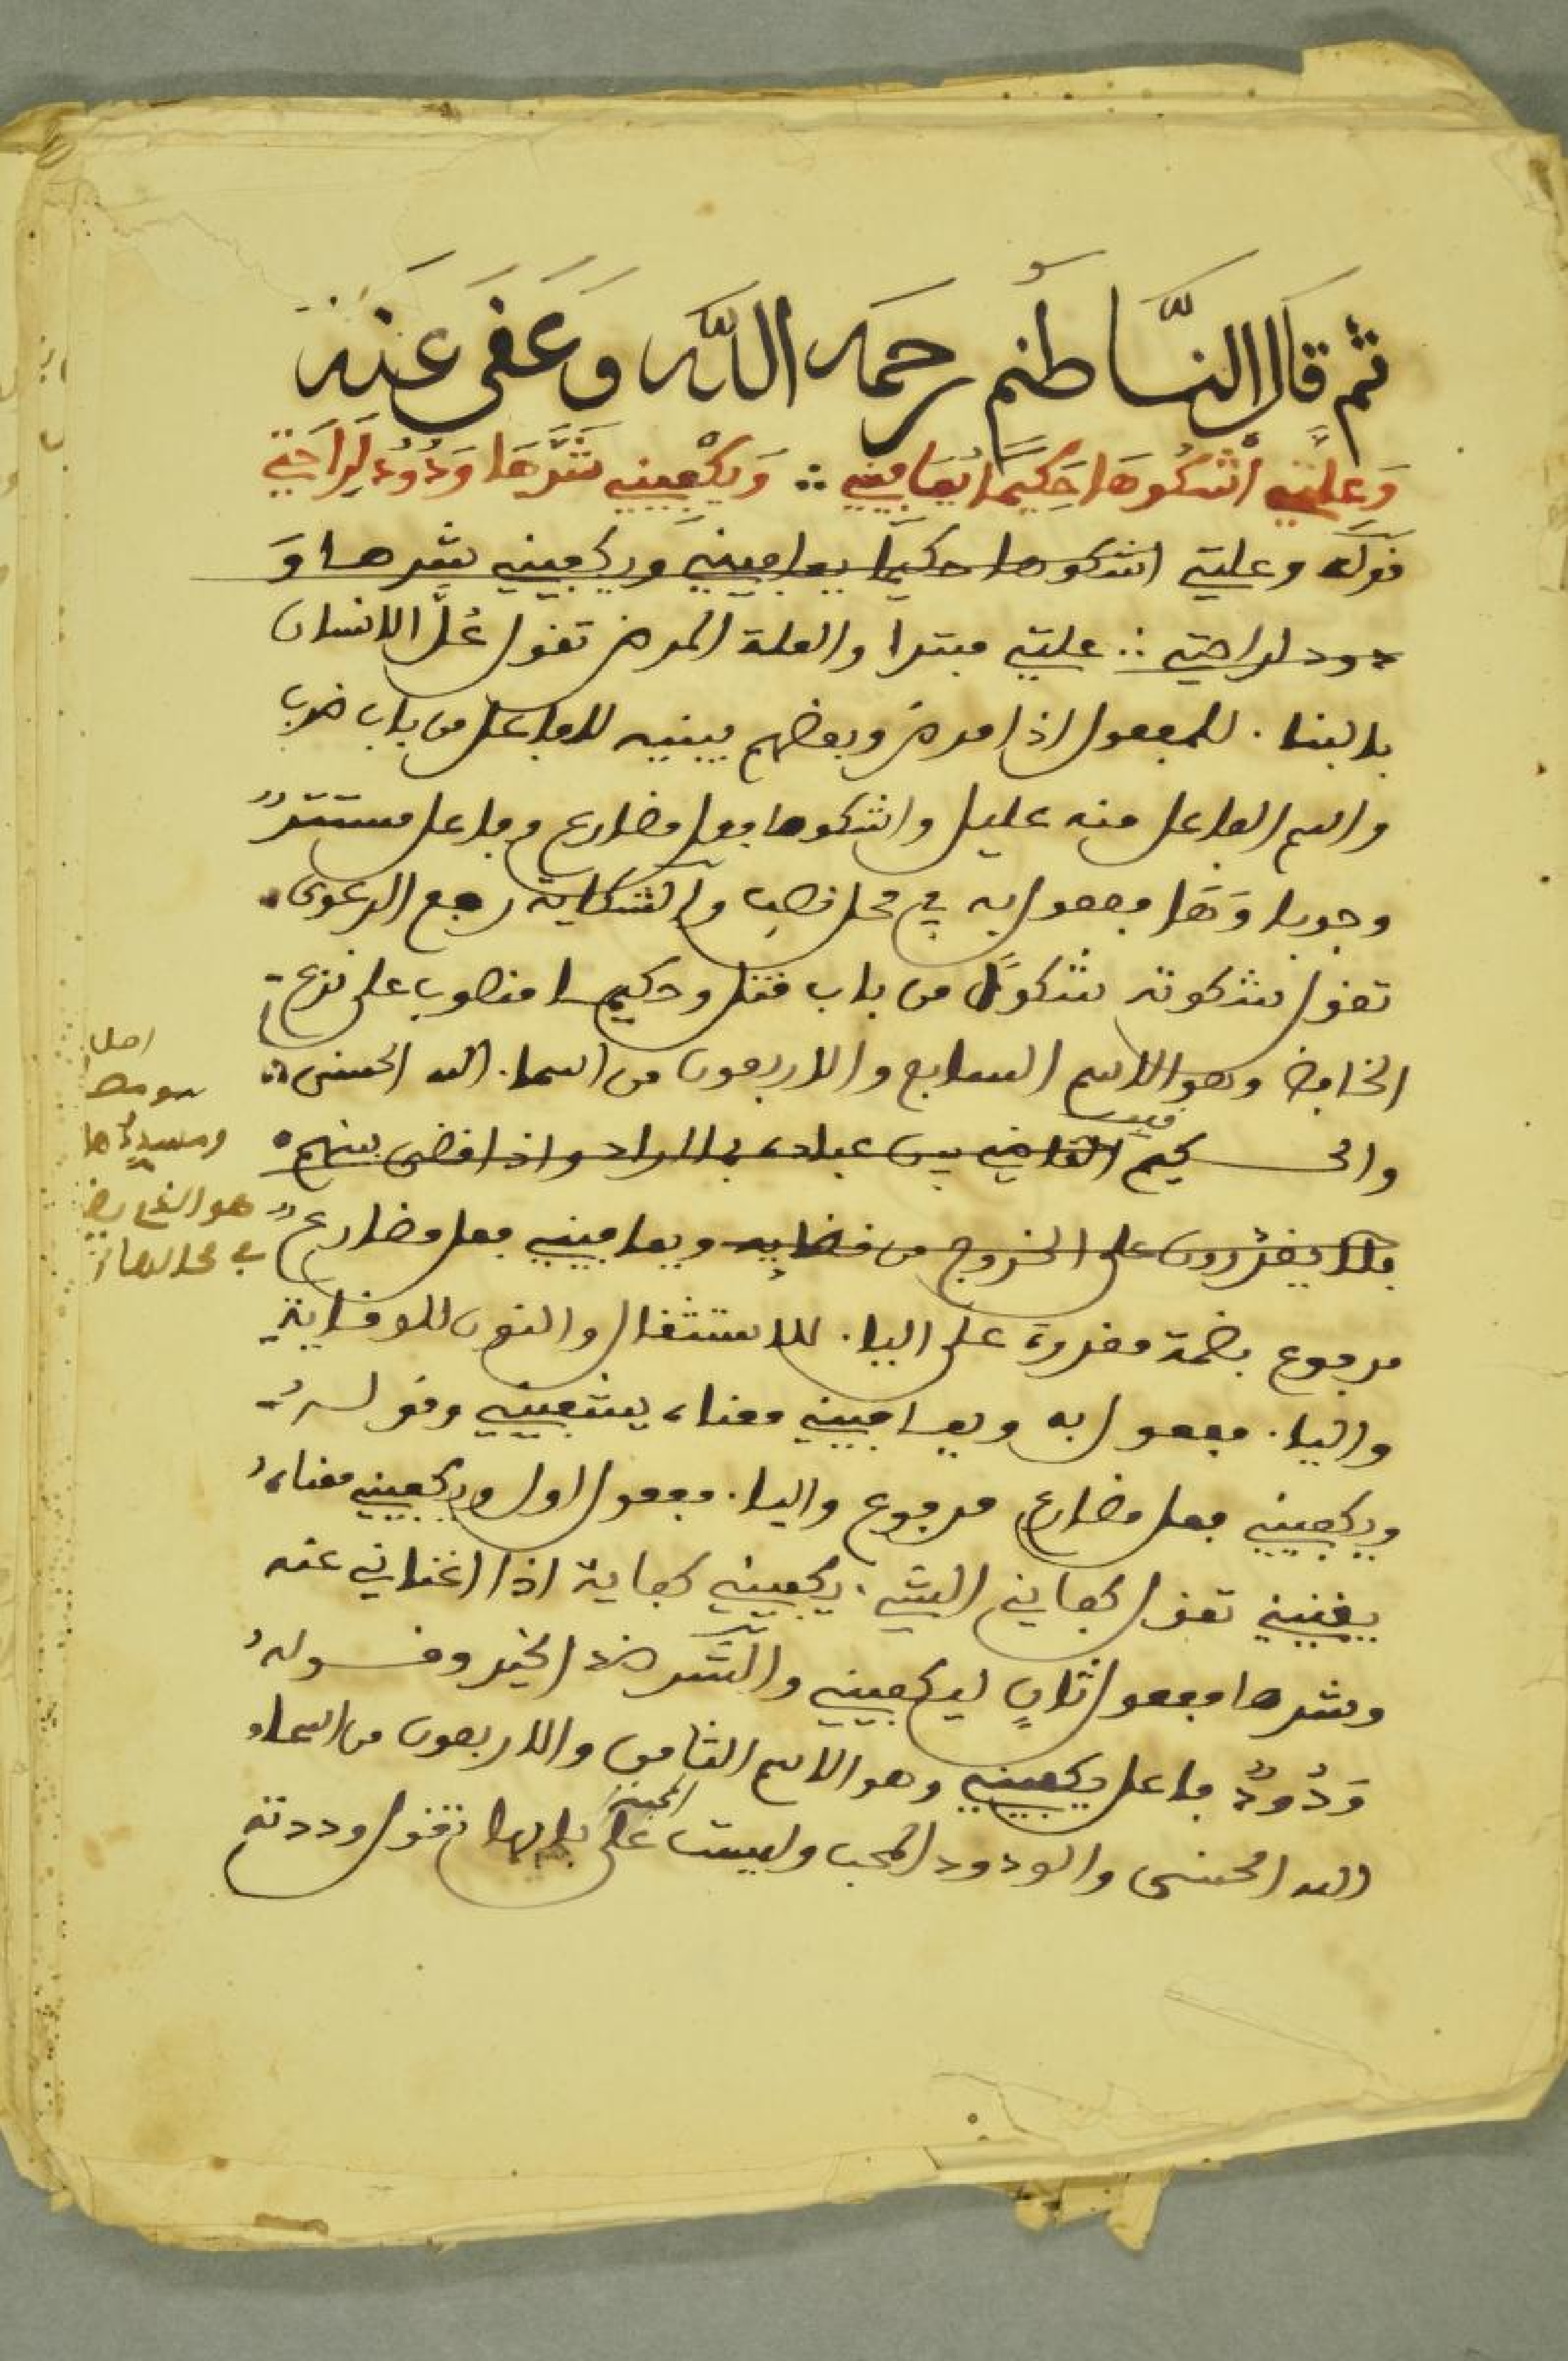 ثم قال الناظم رحمه الله وعفى عنه
وَعِلَّتِي أشْكُوهَا حَكِيمًا يُعَافِينِي ∴ وَيَكْفِينِي شَرَّهَا وَدُودٌ لِرَاحَتِي
قوله وعلتي اشكوها حكيما يعافيني ويكفيني شرها وَ
دود لراحتي ∴ علتي مبتدا والعلة المرض تقول عُلَّ الانسان
بالبناء للمفعول اذا مرض وبعضهم يبنيه للفاعل من باب ضرب
واسم الفاعل منه عليل واشكوها فعل مضارع وفاعل مستتر
وجوبا وَهَا مفعول به في محل نصب والشكاية رفع الدعوى
تقول شكوته شكوًا من باب قتل وحكيما منصوب على نزع
الخافض وهو الاسم السابع والاربعون من اسماء الله الحسنى
والحكيم القاضي بين عباده بالمراد واذا قضى بينهم
فلا يقدرون على الخروج من قضايه ويعافيني فعل مضارع
مرفوع بضمة مقدرة على الياء للاستثقال والنون للوقاية
والياء مفعول به ويعافيني معناه يشفيني وقوله
ويكفيني فعل مضارع مرفوع والياء مفعول اول ويكفيني معناه
يغنيني تقول كفاني الشيء يكفيني كفاية اذا اغناني عنه
وشرها مفعول ثانٍ ليكفيني والشر ضد الخير وقوله
وَدُودٌ فاعل يكفيني وهو الاسم الثامن والاربعون من اسماء
الله الحسنى والودود المحب وليست المحبة على بابها تقول وددته
اصل
هو الخافض